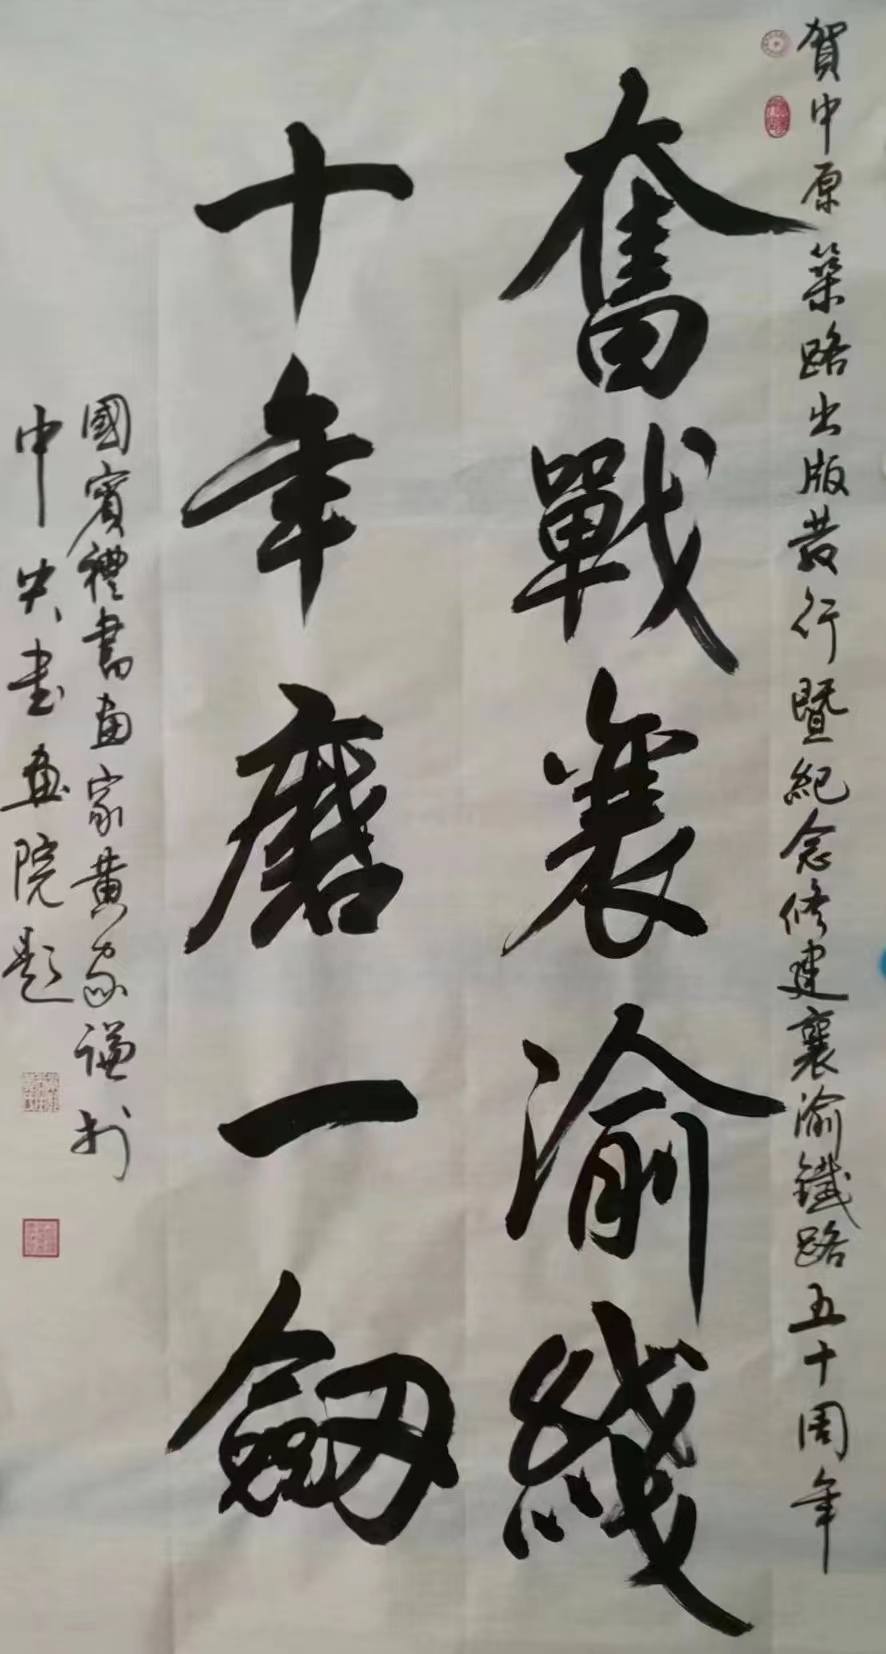 賀中原築路出版發行暨紀念修建襄渝鐵路五十周年
奮戰襄渝綫
十年磨一劍
國賓禮書畫家黄家谦於
中央书画院题